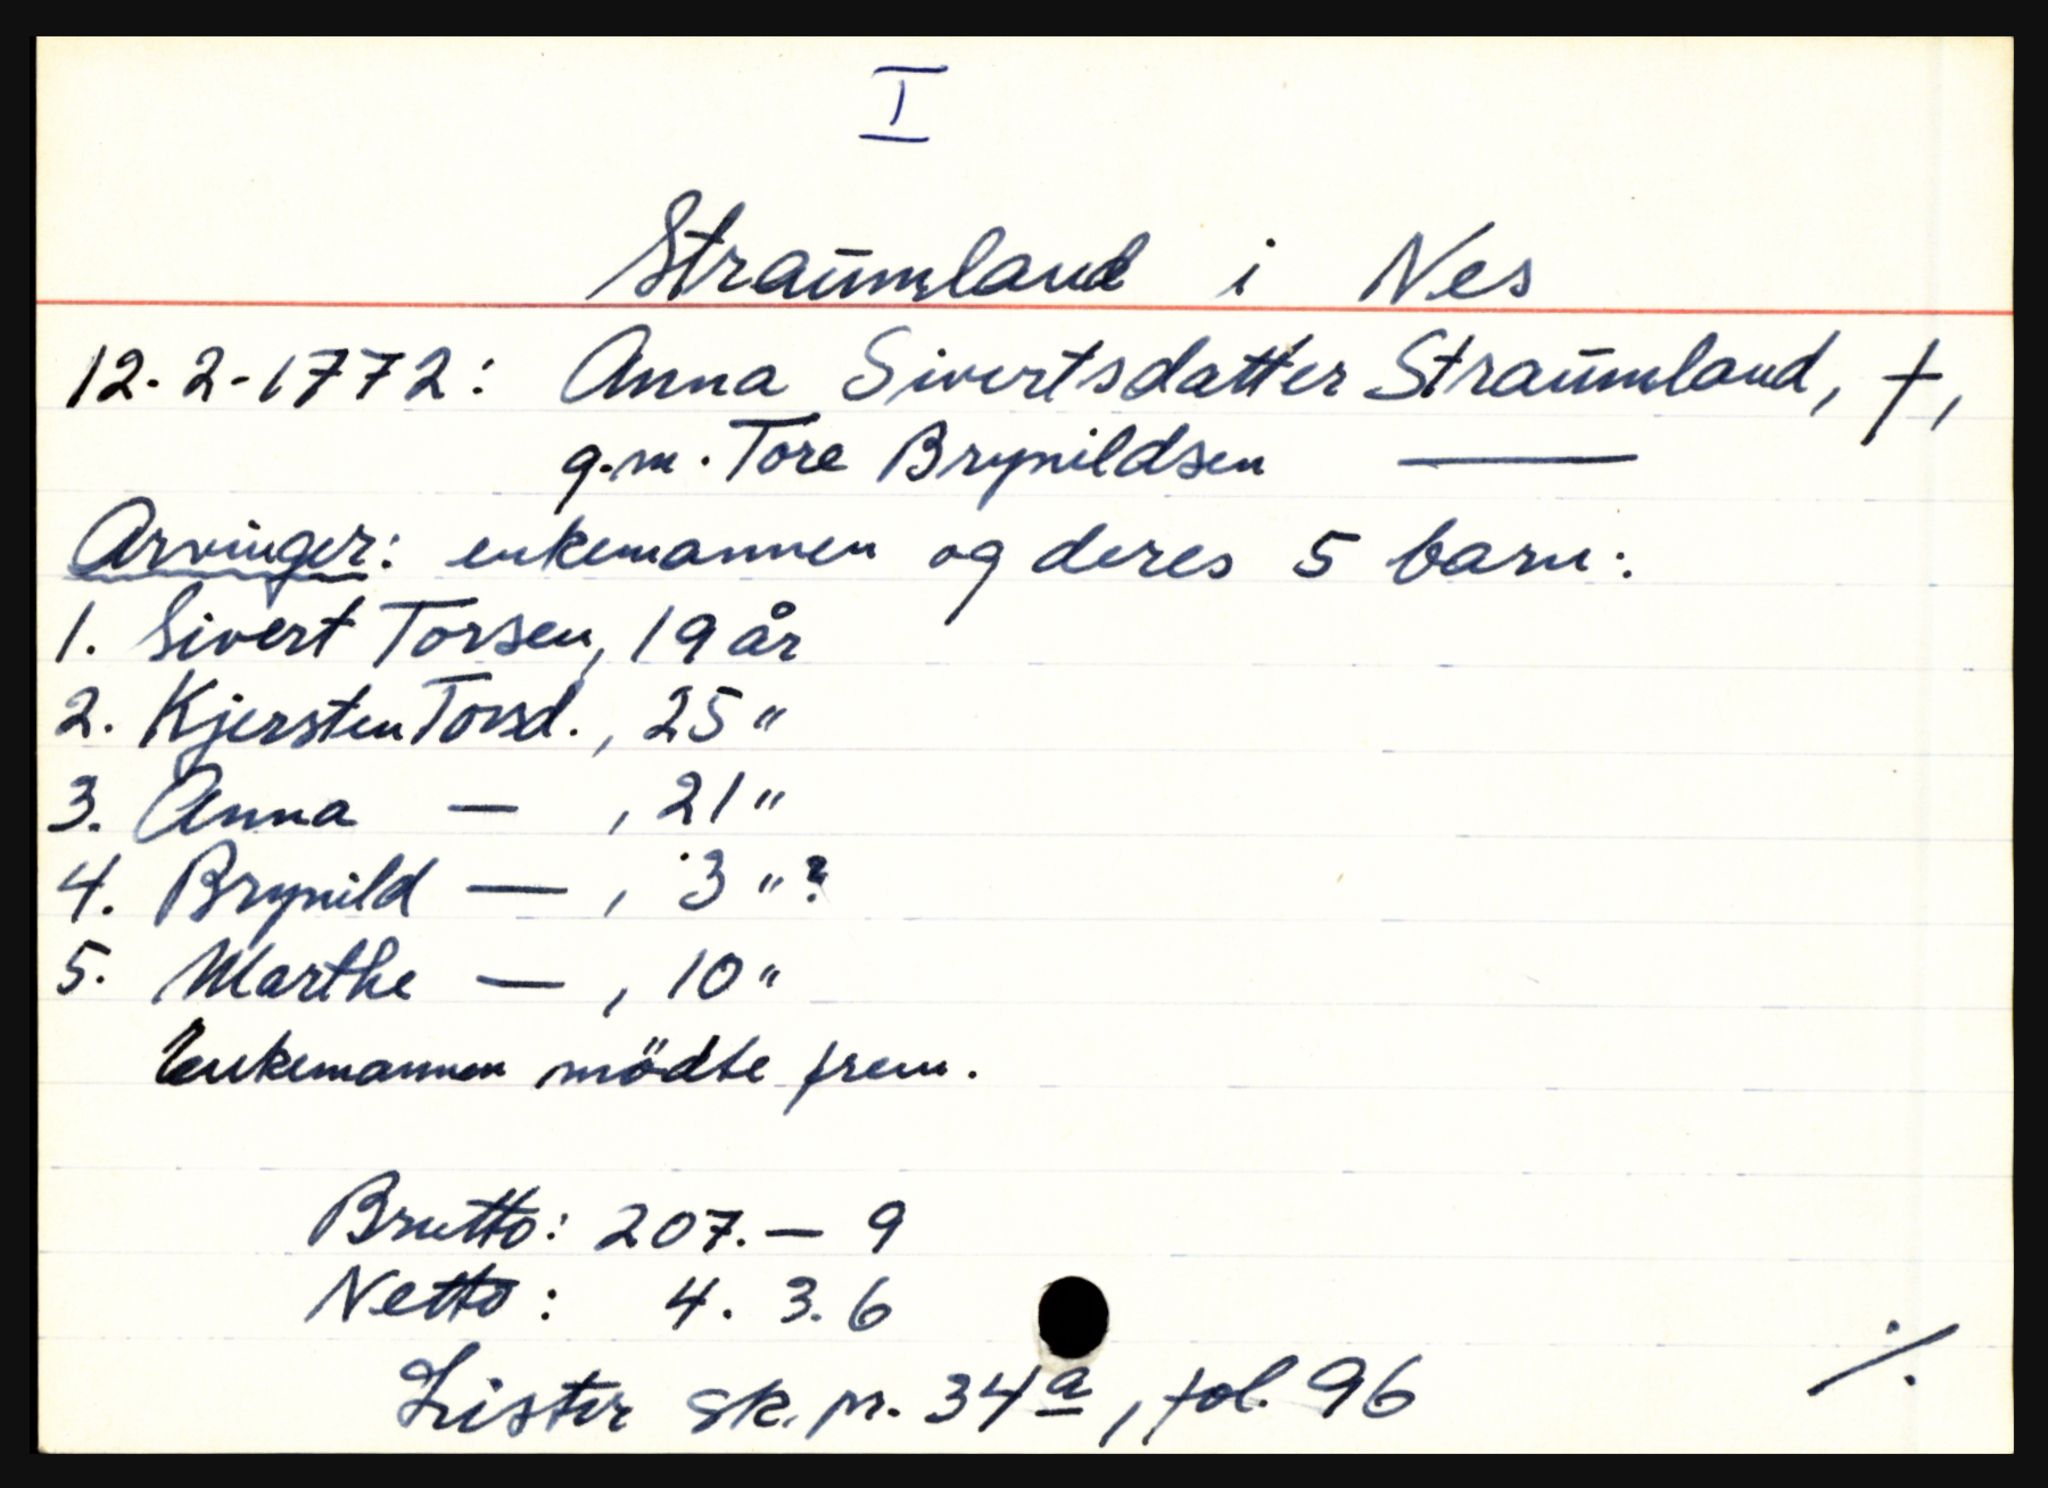 I
Straumland i Nes
12.2-1772: Anna Sivertsdatter Straumland, †,
g.m. Tore Brynildsen —
Arvinger: enkemannen og deres 5 barn:
1. Sivert Torsen, 19 år
2. Kjersten Torsd., 25 "
3. Anna — , 21 "
4. Brynild — , 3 " ?
5. Marthe — , 10 "
Enkemannen mödte frem.
Brutto: 207. — 9
Netto: 4. 3. 6
Lister sk. pr. 34a, fol. 96
./.